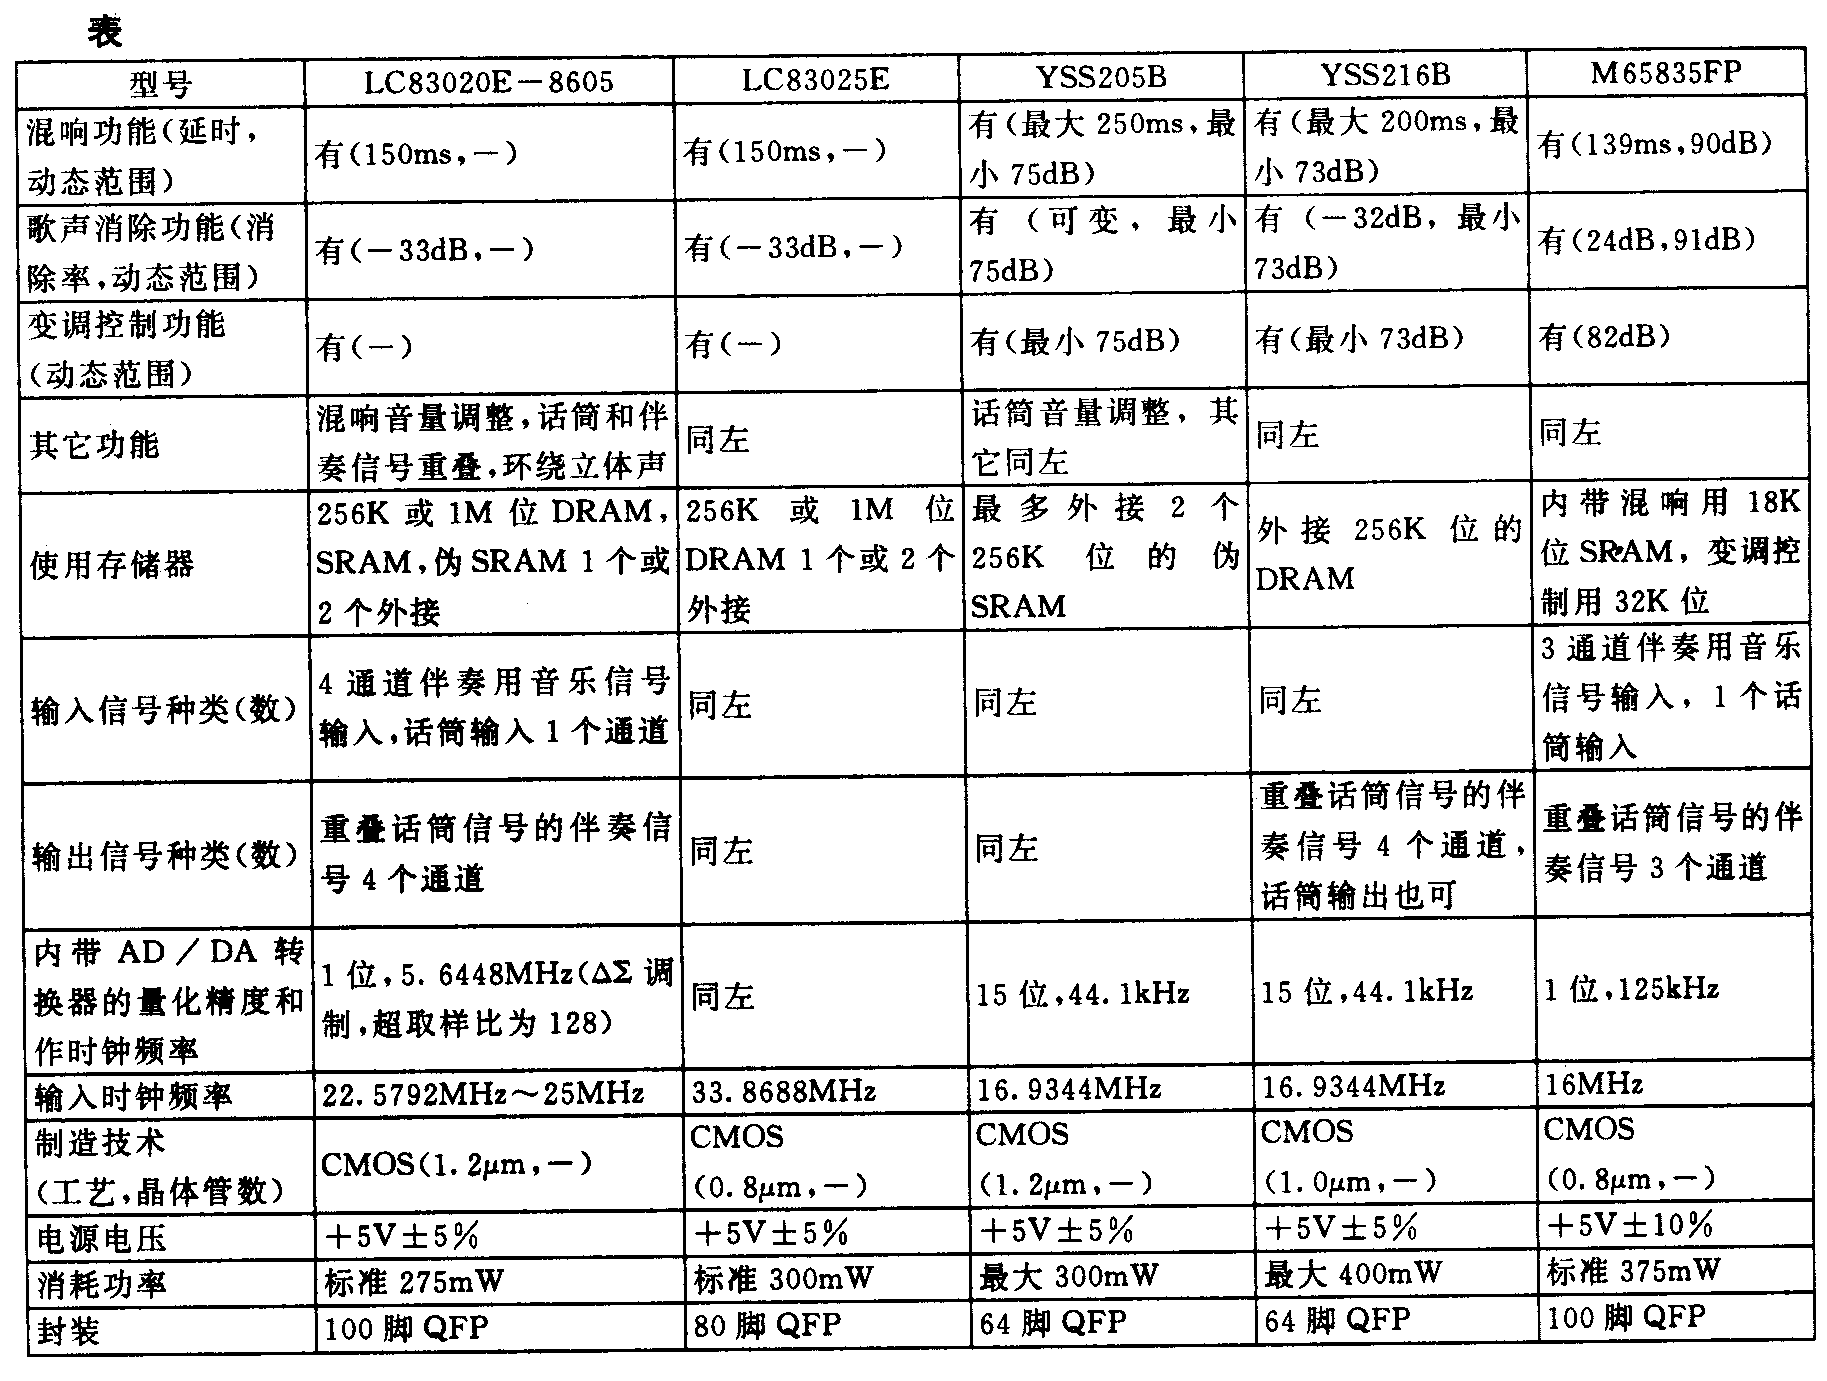 表
型号
LC83020E-8605
LC83025E
YSS205B
YSS216B
M65835FP
混响功能(延时,
动态范围)
有(150ms,-)
有(150ms,-)
有(最大 250ms,最
小 75dB)
有(最大 200ms,最
小 73dB)
有(139ms,90dB)
歌声消除功能(消
除率,动态范围)
有(-33dB,-)
有(-33dB,-)
有(可变,最小
75dB)
有(-32dB,最小
73dB)
有(24dB,91dB)
变调控制功能
(动态范围)
有(-)
有(-)
有(最小 75dB)
有(最小 73dB)
有(82dB)
其它功能
混响音量调整,话筒和伴
奏信号重叠,环绕立体声
同左
话筒音量调整,其
它同左
同左
同左
使用存储器
256K 或 1M 位 DRAM,
SRAM,伪 SRAM 1 个或
2 个外接
256K 或 1M 位
DRAM 1 个或 2 个
外接
最多外接 2 个
256K 位的伪
SRAM
外接 256K 位的
DRAM
内带混响用 18K
位 SRAM,变调控
制用 32K 位
输入信号种类(数)
4 通道伴奏用音乐信号
输入,话筒输入 1 个通道
同左
同左
同左
3 通道伴奏用音乐
信号输入,1 个话
筒输入
输出信号种类(数)
重叠话筒信号的伴奏信
号 4 个通道
同左
同左
重叠话筒信号的伴
奏信号 4 个通道,
话筒输出也可
重叠话筒信号的伴
奏信号 3 个通道
内带 AD/DA 转
换器的量化精度和
作时钟频率
1 位,5.6448MHz(ΔΣ 调
制,超取样比为 128)
同左
15 位,44.1kHz
15 位,44.1kHz
1 位,125kHz
输入时钟频率
22.5792MHz~25MHz
33.8688MHz
16.9344MHz
16.9344MHz
16MHz
制造技术
(工艺,晶体管数)
CMOS(1.2μm,-)
CMOS
(0.8μm,-)
CMOS
(1.2μm,-)
CMOS
(1.0μm,-)
CMOS
(0.8μm,-)
电源电压
+5V±5%
+5V±5%
+5V±5%
+5V±5%
+5V±10%
消耗功率
标准 275mW
标准 300mW
最大 300mW
最大 400mW
标准 375mW
封装
100 脚 QFP
80 脚 QFP
64 脚 QFP
64 脚 QFP
100 脚 QFP